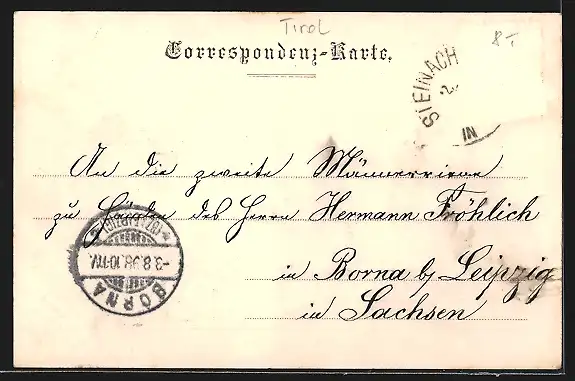 Tirol
8 T
Correspondenz-Karte.
STEINACH
2
IN
An die zweite Männerriege
zu Händen des Herrn Hermann Fröhlich
in Borna b/ Leipzig
in Sachsen
(BZ. LEIPZIG)
-3.8.98.10-11V.
BORNA